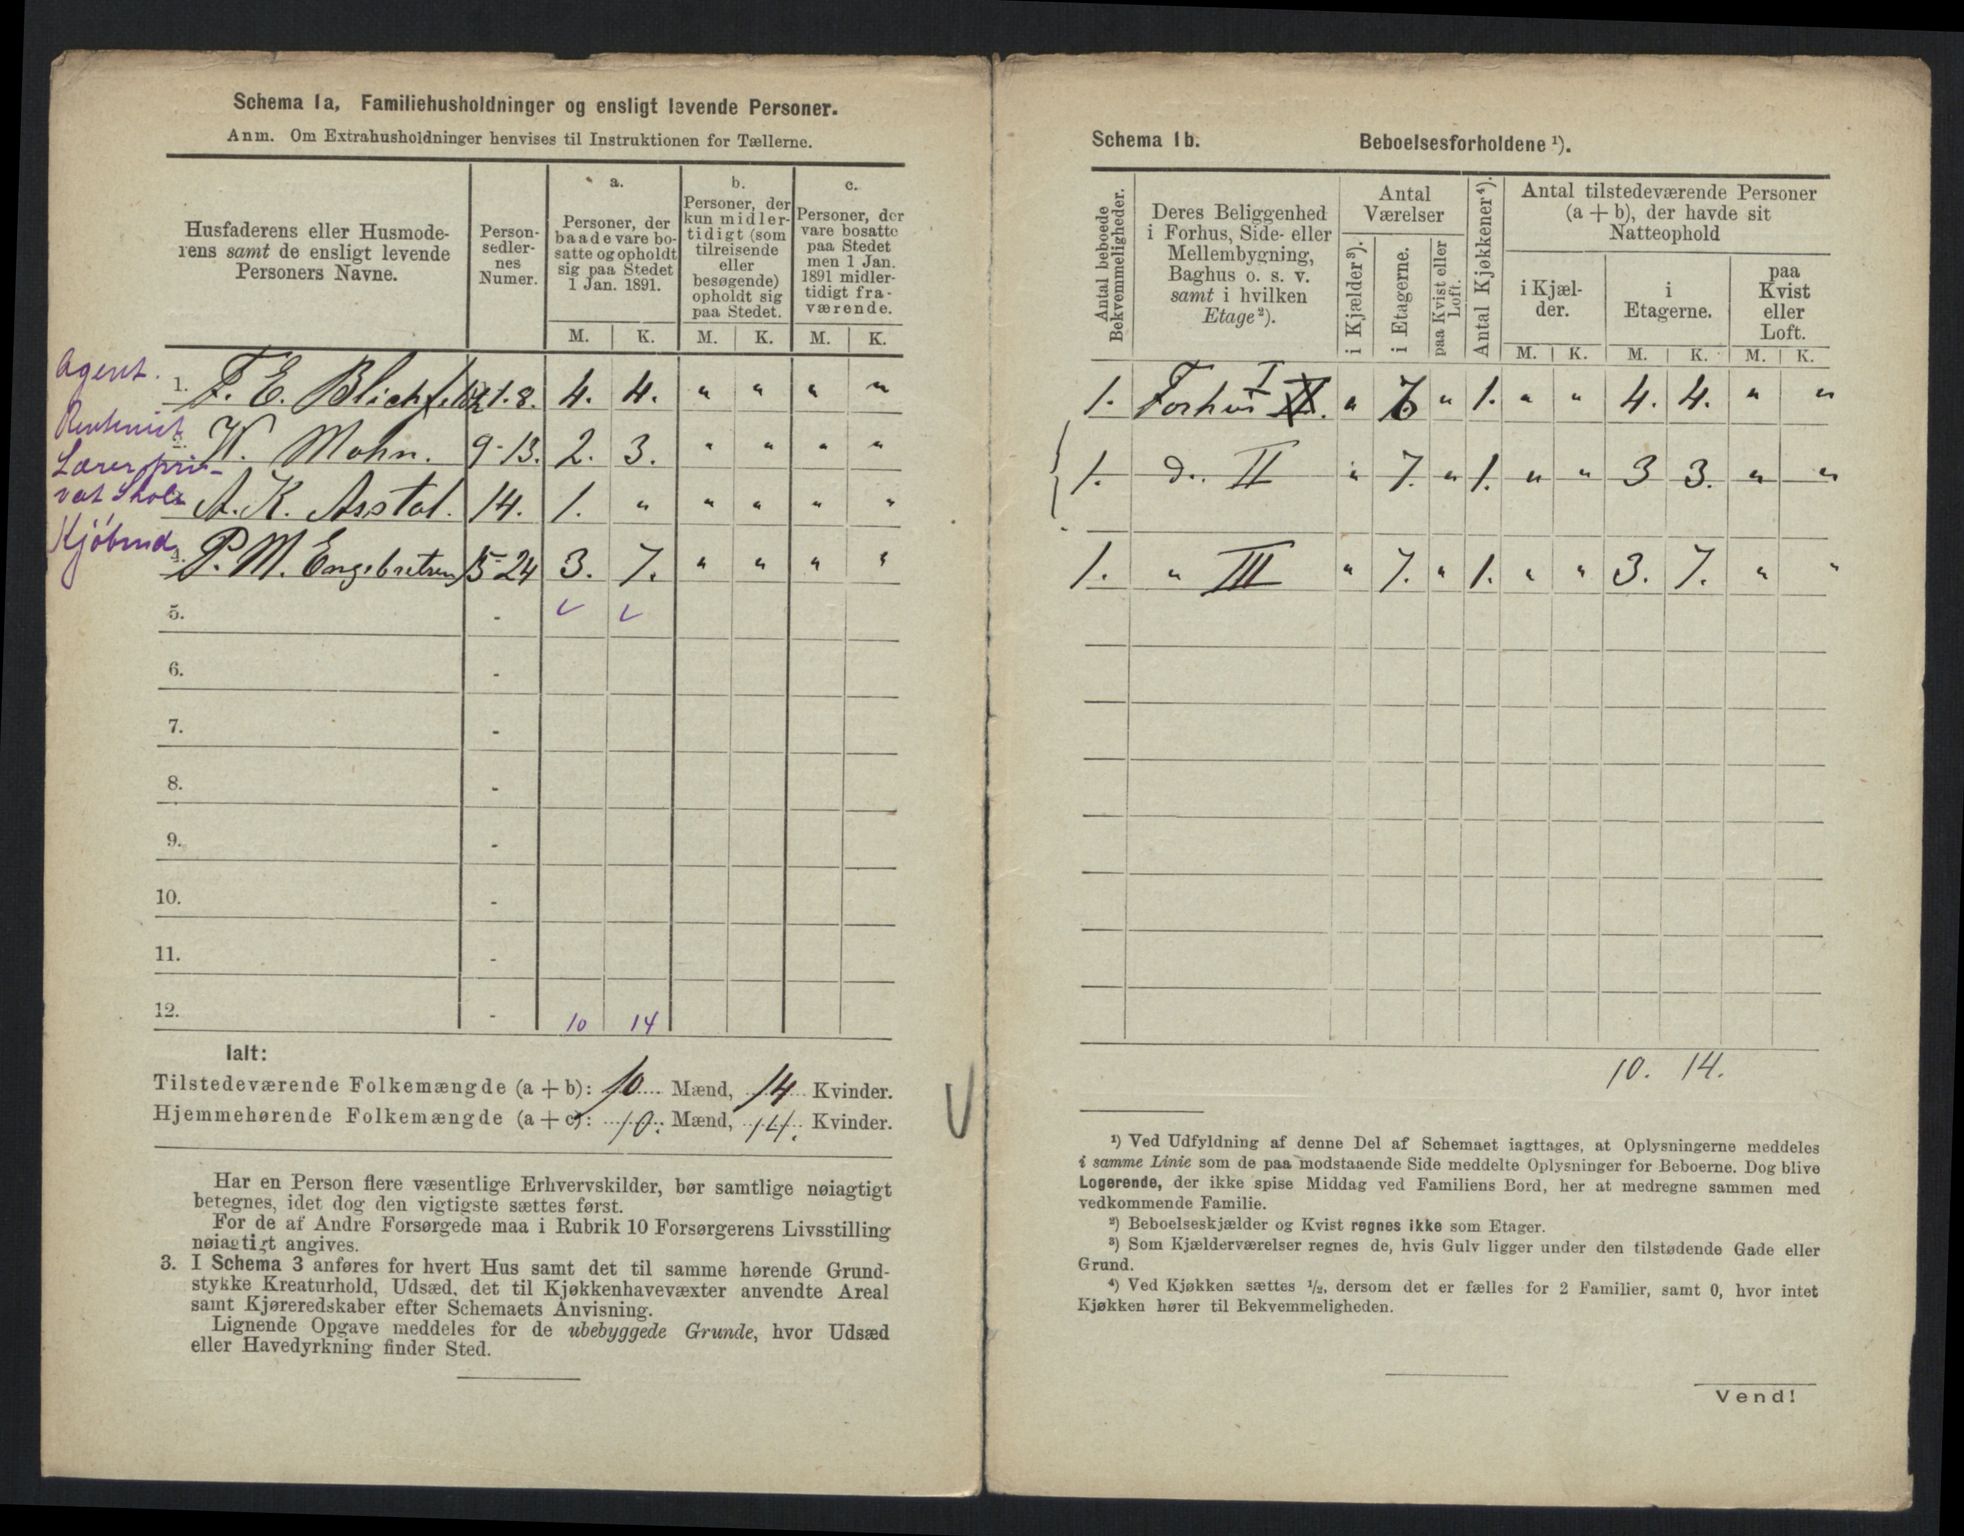 Schema 1a, Familiehusholdninger og ensligt levende Personer.
Anm. Om Extrahusholdninger henvises til Instruktionen for Tællerne.
Husfaderens eller Husmode-
rens samt de ensligt levende
Personers Navne.
Person-
sedler-
nes
Numer.
a.
Personer, der
baade vare bo-
satte og opholdt
sig paa Stedet
1 Jan. 1891.
b.
Personer, der
kun midler-
tidigt (som
tilreisende
eller
besøgende)
opholdt sig
paa Stedet.
c.
Personer, der
vare bosatte
paa Stedet
men 1 Jan.
1891 midler-
tidigt fra-
værende.
M. K. M. K. M. K.
Agent. 1. F. E. Blichf. 1. 8. 4. 4. " " " "
Rentenist W. Mohn. 9-13. 2. 3. " " " "
Lærer pri-
vat Skole A. K. Arstal. 14. 1. " " " " "
Kjøbmd P. M. Engebretsen 15-24 3. 7. " " " "
5. -
6. -
7. -
8. -
9. -
10. -
11. -
12. - 10 14
Ialt:
Tilstedeværende Folkemængde (a + b): 10 Mænd, 14 Kvinder.
Hjemmehørende Folkemængde (a + c): 10. Mænd, 14. Kvinder.
Har en Person flere væsentlige Erhvervskilder, bør samtlige nøiagtigt
betegnes, idet dog den vigtigste sættes først.
For de af Andre Forsørgede maa i Rubrik 10 Forsørgerens Livsstilling
nøiagtigt angives.
3. I Schema 3 anføres for hvert Hus samt det til samme hørende Grund-
stykke Kreaturhold, Udsæd, det til Kjøkkenhavevæxter anvendte Areal
samt Kjøreredskaber efter Schemaets Anvisning.
Lignende Opgave meddeles for de ubebyggede Grunde, hvor Udsæd
eller Havedyrkning finder Sted.
Schema 1b. Beboelsesforholdene ¹).
Antal beboede
Bekvemmeligheder.
Deres Beliggenhed
i Forhus, Side- eller
Mellembygning,
Baghus o. s. v.
samt i hvilken
Etage²).
Antal
Værelser
i Kjælder³).
i Etagerne.
paa Kvist eller
Loft.
Antal Kjøkkener⁴).
Antal tilstedeværende Personer
(a + b), der havde sit
Natteophold
i Kjæl-
der.
i
Etagerne.
paa
Kvist
eller
Loft.
M. K. M. K. M. K.
1. Forhus I " 7 " 1. " " 4. 4. " "
1. do. II " 7. " 1. " " 3 3. " "
1. " III " 7. " 1. " " 3. 7. " "
10. 14.
¹) Ved Udfyldning af denne Del af Schemaet iagttages, at Oplysningerne meddeles
i samme Linie som de paa modstaaende Side meddelte Oplysninger for Beboerne. Dog blive
Logerende, der ikke spise Middag ved Familiens Bord, her at medregne sammen med
vedkommende Familie.
²) Beboelseskjælder og Kvist regnes ikke som Etager.
³) Som Kjælderværelser regnes de, hvis Gulv ligger under den tilstødende Gade eller
Grund.
⁴) Ved Kjøkken sættes ¹/₂, dersom det er fælles for 2 Familier, samt 0, hvor intet
Kjøkken hører til Bekvemmeligheden.
Vend!